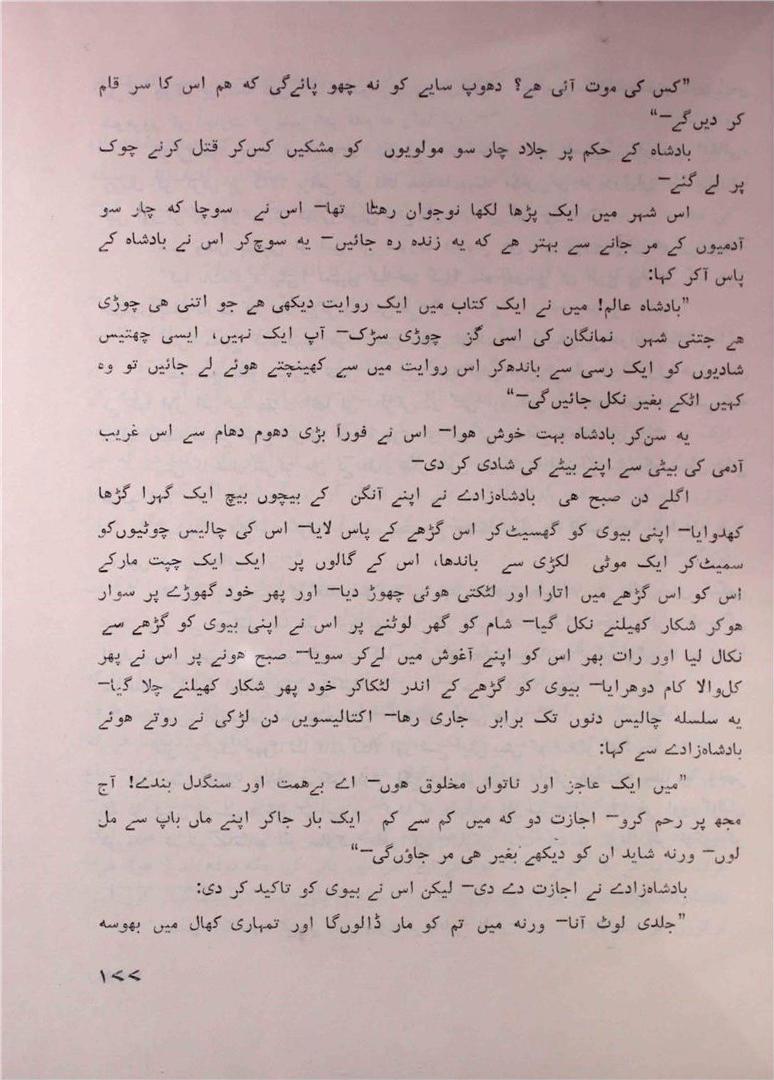 ”کس کی موت آئی هے؟ دھوپ سایے کو نه چھو پائےگی که هم اس کا سر قلم
کر دیں‌گے—“
بادشاہ کے حکم پر جلاد چار سو مولویوں کو مشکیں کس‌کر قتل کرنے چوک
پر لے گئے—
اس شہر میں ایک پڑھا لکھا نوجوان رهتا تھا— اس نے سوچا که چار سو
آدمیوں کے مر جانے سے بہتر هے که یه زندہ رہ جائیں— یه سوچ‌کر اس نے بادشاہ کے
پاس آکر کہا:
”بادشاہ عالم! میں نے ایک کتاب میں ایک روایت دیکھی هے جو اتنی هی چوڑی
هے جتنی شہر نمانگان کی اسی گز چوڑی سڑک— آپ ایک نہیں، ایسی چھتیس
شادیوں کو ایک رسی سے باندھ‌کر اس روایت میں سے کھینچتے هوئے لے جائیں تو وہ
کہیں اٹکے بغیر نکل جائیں‌گی—“
یه سن‌کر بادشاہ بہت خوش هوا— اس نے فوراً بڑی دھوم دھام سے اس غریب
آدمی کی بیٹی سے اپنے بیٹے کی شادی کر دی—
اگلے دن صبح هی بادشاہ‌زادے نے اپنے آنگن کے بیچوں بیچ ایک گہرا گڑھا
کھدوایا— اپنی بیوی کو گھسیٹ‌کر اس گڑھے کے پاس لایا— اس کی چالیس چوٹیوں‌کو
سمیٹ‌کر ایک موٹی لکڑی سے باندھا، اس کے گالوں پر ایک ایک چپت مارکے
اس کو اس گڑھے میں اتارا اور لٹکتی هوئی چھوڑ دیا— اور پھر خود گھوڑے پر سوار
هوکر شکار کھیلنے نکل گیا— شام کو گھر لوٹنے پر اس نے اپنی بیوی کو گڑھے سے
نکال لیا اور رات بھر اس کو اپنے آغوش میں لےکر سویا— صبح هونے پر اس نے پھر
کل‌والا کام دوھرایا— بیوی کو گڑھے کے اندر لٹکاکر خود پھر شکار کھیلنے چلا گیا—
یه سلسله چالیس دنوں تک برابر جاری رها— اکتالیسویں دن لڑکی نے روتے هوئے
بادشاہ‌زادے سے کہا:
”میں ایک عاجز اور ناتواں مخلوق هوں— اے بےهمت اور سنگدل بندے! آج
مجھ پر رحم کرو— اجازت دو که میں کم سے کم ایک بار جاکر اپنے ماں باپ سے مل
لوں— ورنه شاید ان کو دیکھے بغیر هی مر جاؤں‌گی—“
بادشاہ‌زادے نے اجازت دے دی— لیکن اس نے بیوی کو تاکید کر دی:
”جلدی لوٹ آنا— ورنه میں تم کو مار ڈالوں‌گا اور تمہاری کھال میں بھوسه
۱۷۷